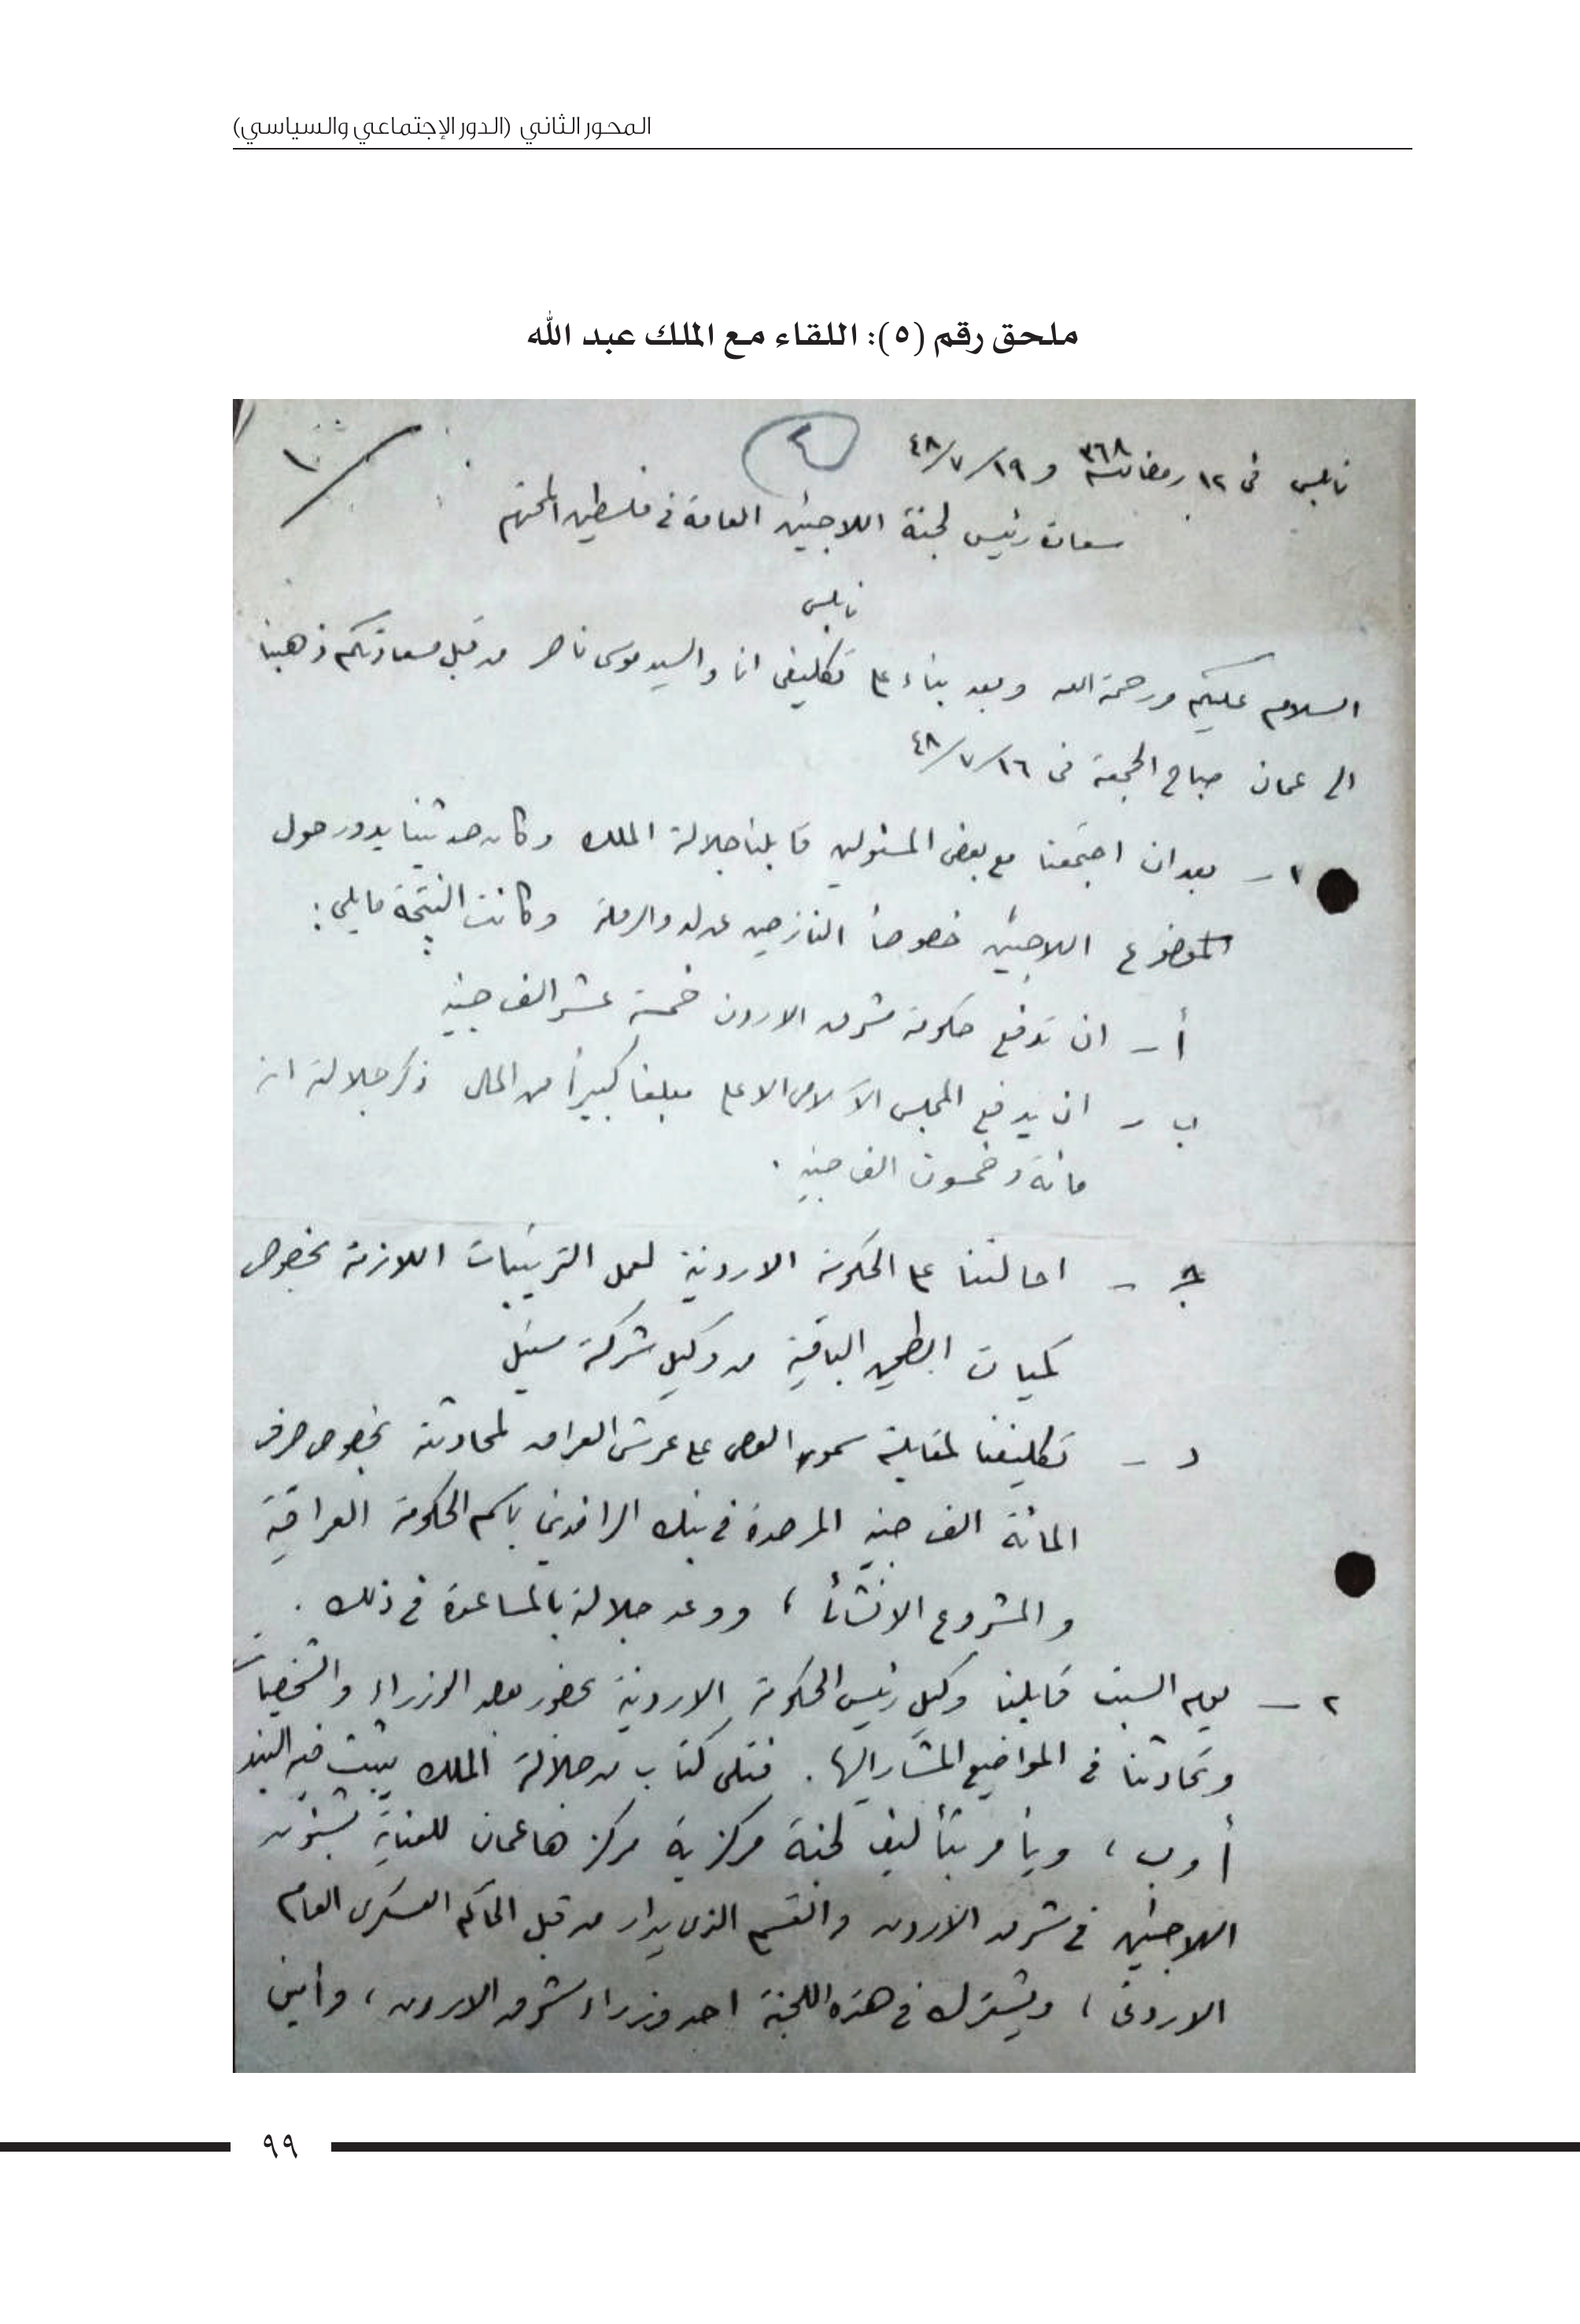 المحور الثاني (الدور الإجتماعي والسياسي)
ملحق رقم (٥): اللقاء مع الملك عبد الله
١
٢
نابلس في ١٢ رمضان سنة ٣٦٨ و ١٩/٧/٤٨
سعادة رئيس لجنة اللاجئين العامة في فلسطين المحترم
نابلس
السلام عليكم ورحمة الله وبعد بناء على تكليفى انا والسيد موسى ناصر من قبل سعادتكم ذهبنا
الى عمان صباح الجمعة فى ١٦/٧/٤٨
١ - بعد ان اجتمعنا مع بعض المسئولين قابلنا جلالة الملك وكان حديثنا يدور حول
موضوع اللاجئين خصوصاً النازحين عن لد والرملة وكانت النتيجة مايلى :
أ - ان تدفع حكومة شرق الاردن خمسة عشر الف جنيه
ب - ان يدفع المجلس الاسلامى الاعلى مبلغا كبيراً من المال ذكر جلالته انه
مائة وخمسون الف جنيه .
ج - احالتنا على الحكومة الاردنية لعمل الترتيبات اللازمة بخصوص
كميات الطحين الباقية من وكيل شركة ستيل
د - تكليفنا لمقابلة سمو الوصى على عرش العراق لمحادثته بخصوص صرف
المائة الف جنيه المرصدة في بنك الرافدين باسم الحكومة العراقية
والمشروع الانشائى ، ووعد جلالته بالمساعدة في ذلك .
٢ - يوم السبت قابلنا وكيل رئيس الحكومة الاردنية بحضور بعض الوزراء والشخصيات
وتحادثنا في المواضيع المشار اليها . فتلى كتاب من جلالة الملك يثبت فيه البند
أ و ب ، ويأمر بتأليف لجنة مركزية مركزها عمان للعناية بشئون
اللاجئين في شرق الاردن والقسم الذى يدار من قبل الحاكم العسكرى العام
الاردنى ، ويشترك في هذه اللجنة احد وزراء شرق الاردن ، وأمين
٩٩